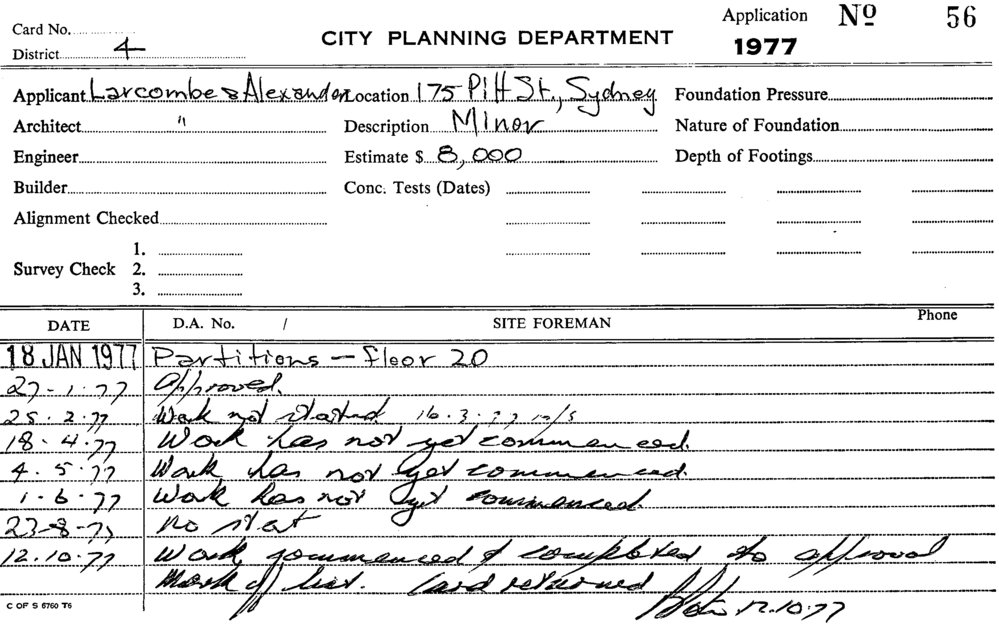 Card No.
District 4
CITY PLANNING DEPARTMENT
Application No 56
1977
Applicant Larcombe & Alexander Location 175 Pitt St., Sydney Foundation Pressure
Architect " Description Minor Nature of Foundation
Engineer Estimate $ 8,000 Depth of Footings
Builder Conc. Tests (Dates)
Alignment Checked
Survey Check 1.
2.
3.
DATE D.A. No. / SITE FOREMAN Phone
18 JAN 1977 Partitions - Floor 20
27-1-77 Approved.
25.2.77 Work not started 16.3.77 n/s
18.4.77 Work has not yet commenced.
4.5.77 Work has not yet commenced.
1-6-77 Work has not yet commenced.
23-8-77 no start
12.10.77 Work commenced & completed to approval
Mark off list. Card returned
12.10.77
C OF S 6760 T6